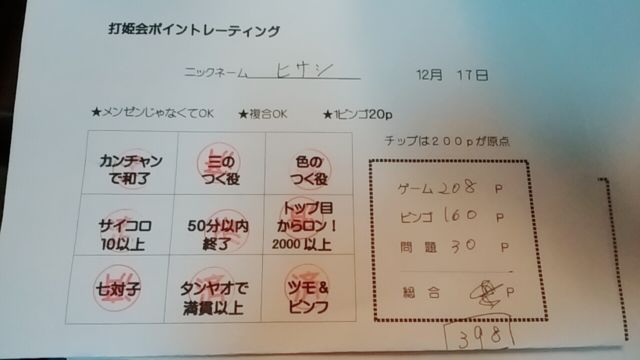 打姫会ポイントレーティング
ニックネーム ヒサシ 12月 17日
★メンゼンじゃなくてOK ★複合OK ★1ビンゴ20p
チップは200pが原点
カンチャン
で和了
三の
つく役
色の
つく役
サイコロ
10以上
50分以内
終了
トップ目
からロン!
2000以上
七対子
タンヤオで
満貫以上
ツモ&
ピンフ
済
ゲーム 208 P
ビンゴ 160 P
問題 30 P
総合 P
398